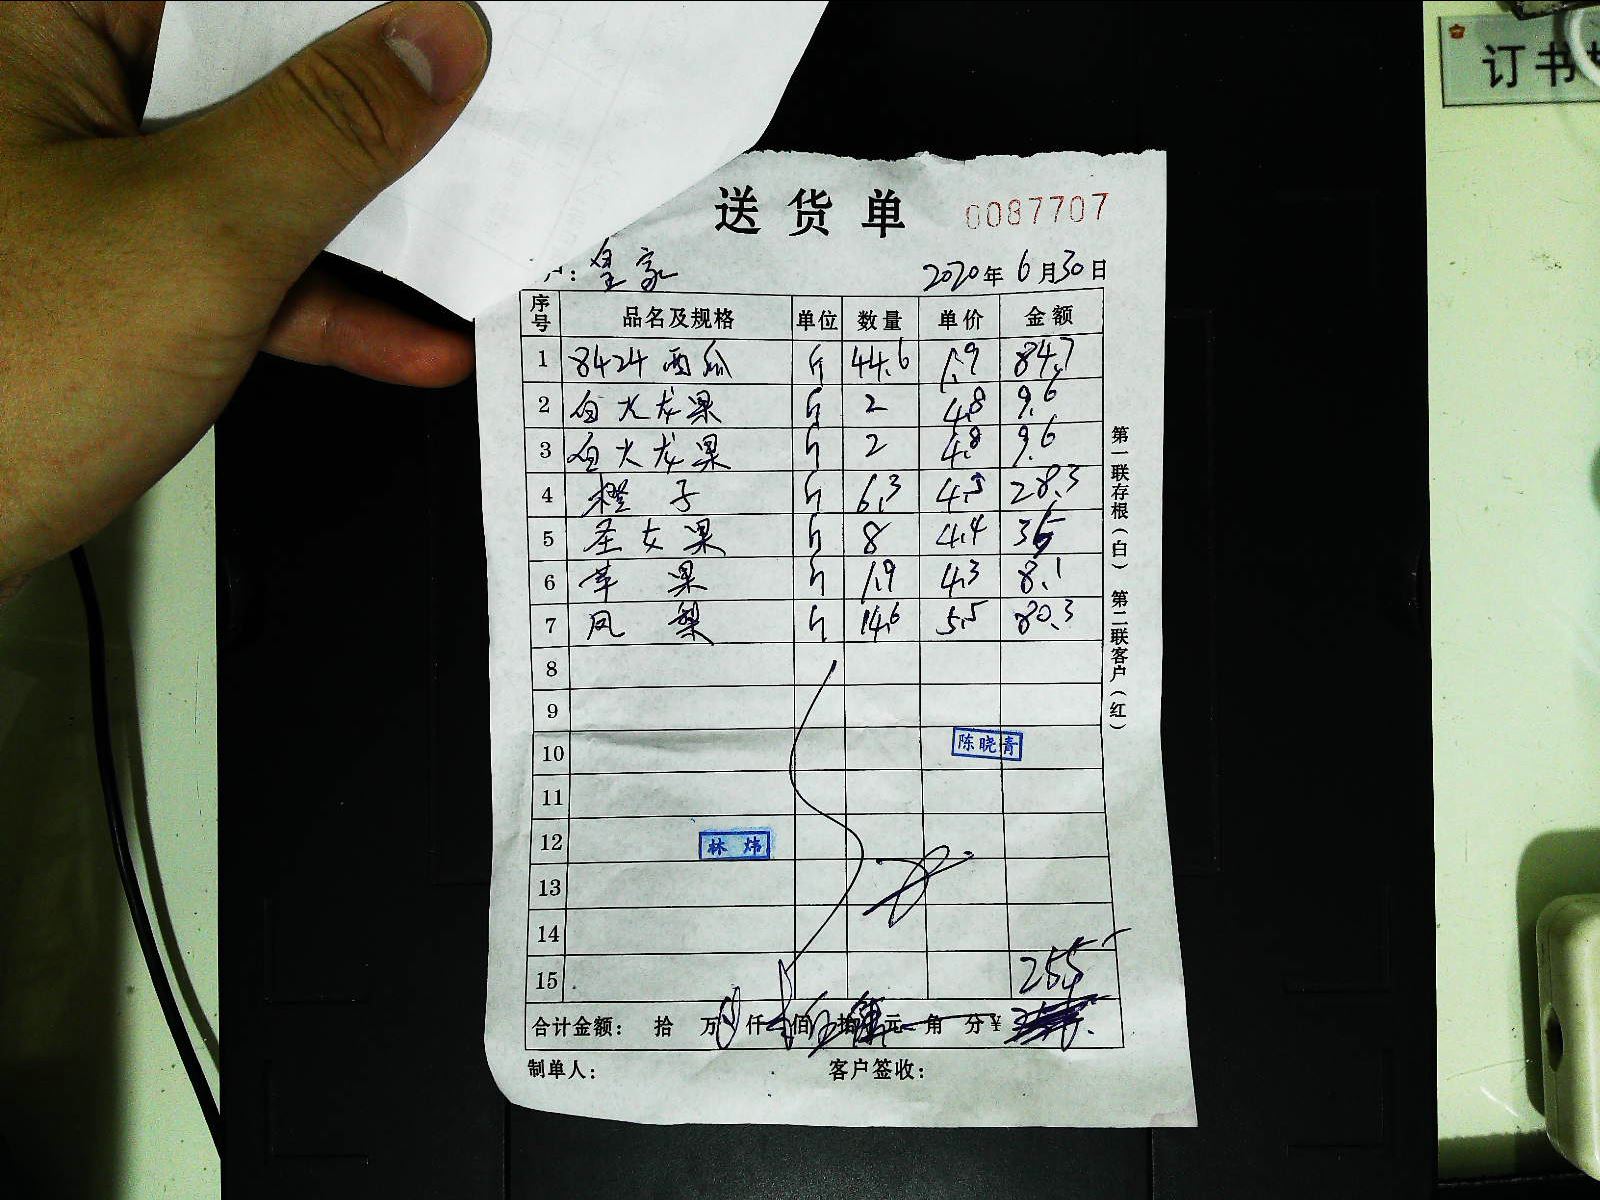 订书
送货单 0087707
：皇家 2020年6月30日
序号 品名及规格 单位 数量 单价 金额
1 8424西瓜 斤 44.6 1.9 84.7
2 白火龙果 斤 2 4.8 9.6
3 白火龙果 斤 2 4.8 9.6
4 橙子 斤 6.3 4.5 28.3
5 圣女果 斤 8 4.4 35
6 苹果 斤 1.9 4.3 8.1
7 凤梨 斤 14.6 5.5 80.3
8
9
10 陈晓青
11
12 林炜
13
14
15 255
合计金额： 拾 万 仟 佰 伍 拾 元 角 分 ¥
制单人： 客户签收：
第一联存根（白） 第二联客户（红）